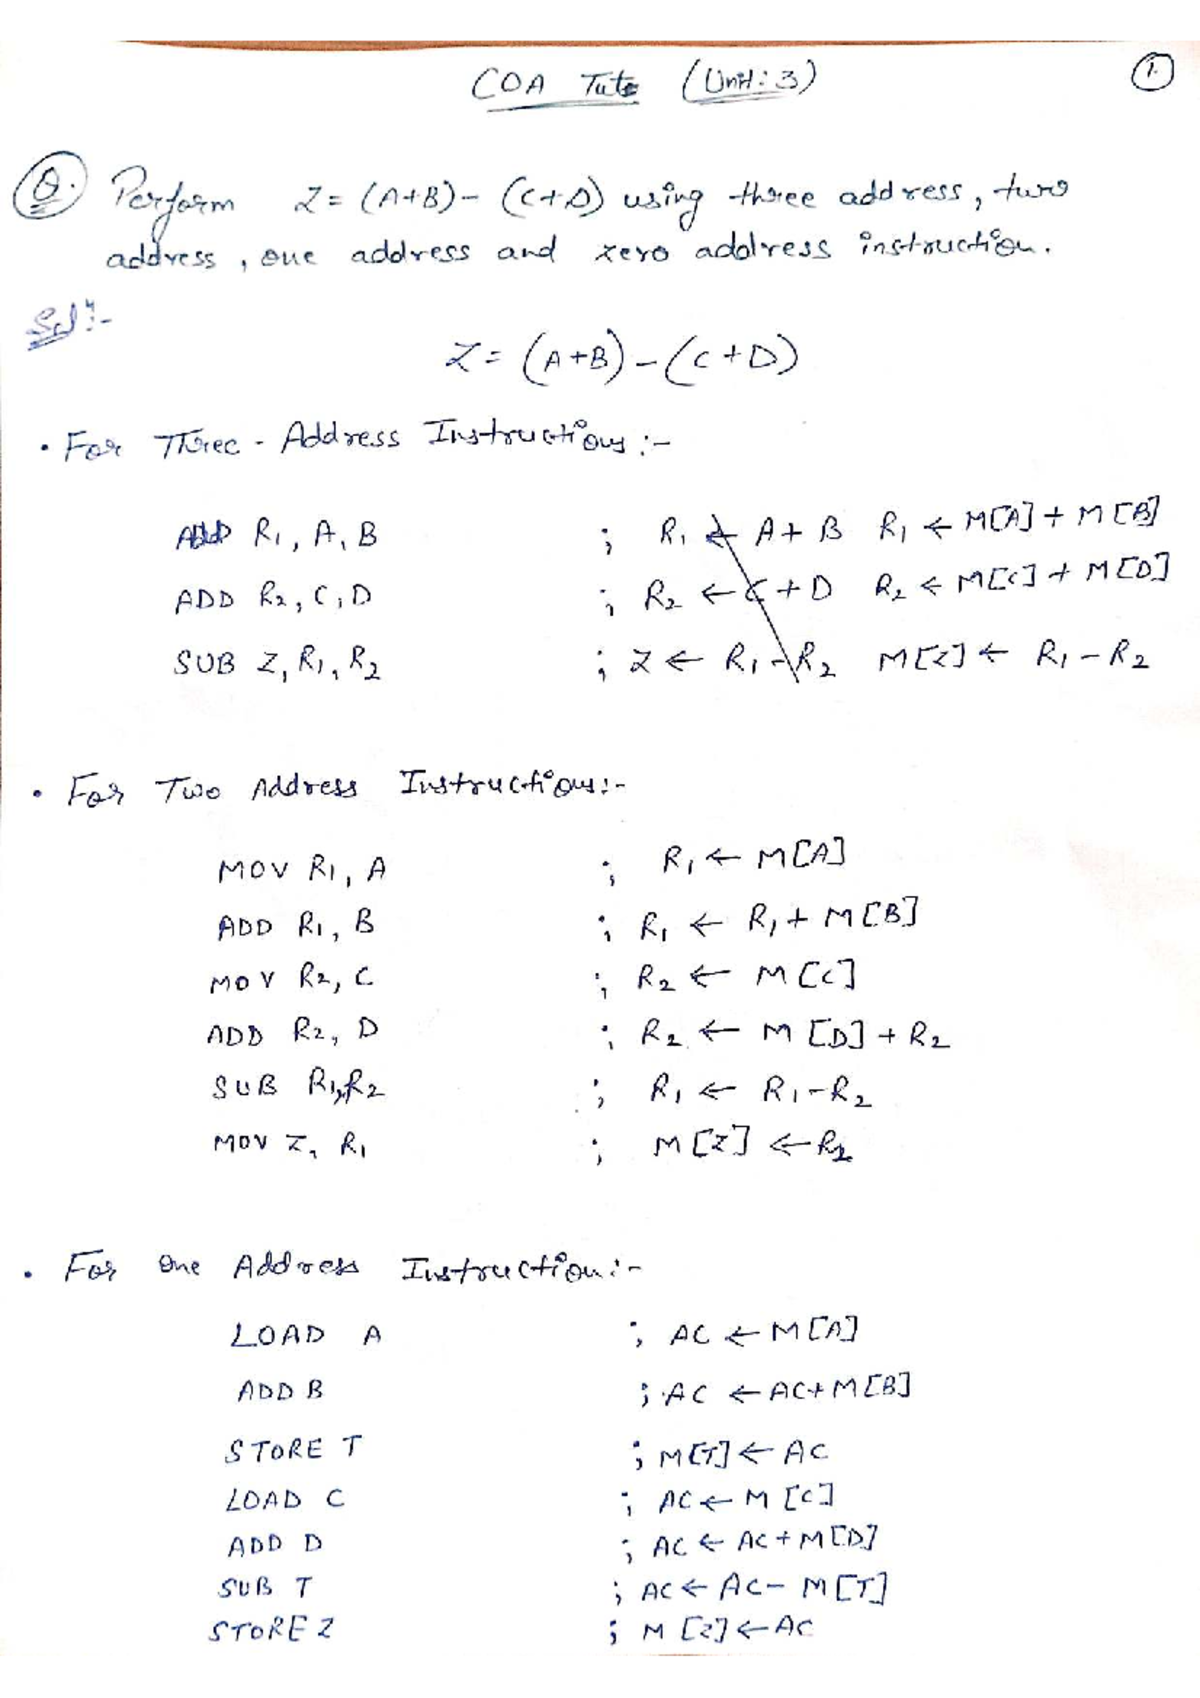 COA Tuts (Unit: 3)
1.
Q. Perform Z = (A+B) - (C+D) using three address, two
address, one address and zero address instruction.
Solⁿ:-
Z = (A+B) - (C+D)
• For Three - Address Instructions :-
ADD R1, A, B ; R1 ← A + B R1 ← M[A] + M[B]
ADD R2, C, D ; R2 ← C + D R2 ← M[C] + M[D]
SUB Z, R1, R2 ; Z ← R1 - R2 M[Z] ← R1 - R2
• For Two Address Instructions:-
MOV R1, A ; R1 ← M[A]
ADD R1, B ; R1 ← R1 + M[B]
MOV R2, C ; R2 ← M[C]
ADD R2, D ; R2 ← M[D] + R2
SUB R1, R2 ; R1 ← R1 - R2
MOV Z, R1 ; M[Z] ←
• For One Address Instruction:-
LOAD A ; AC ← M[A]
ADD B ; AC ← AC + M[B]
STORE T ; M[T] ← AC
LOAD C ; AC ← M[C]
ADD D ; AC ← AC + M[D]
SUB T ; AC ← AC - M[T]
STORE Z ; M[Z] ← AC